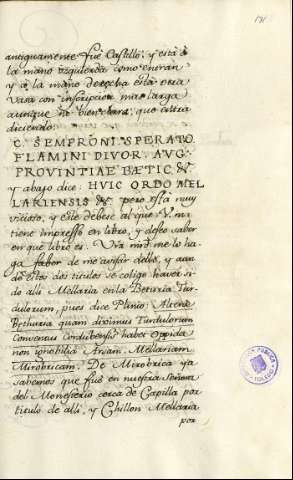 131
antiguamente fué Castillo; y està à
la mano izquierda como entran,
y à la mano derecha està otra
Vasa con inscripcion mas larga
aunque no bien clara; que està
diciendo:
C. SEMPRONI SPERATO
FLAMINI DIVOR. AVG.
PROVINTIAE BÆTIC &
y abajo dice: HVIC ORDO MEL
LARIENSIS & pero està muy
vicioso, y este debe ser el que V. m.
tiene impresso en libro, y deseo saber
en què libro es. Vra. mrd. me lo ha-
ga saber de me avisar dello, y aun
de estos dos titulos se colige haver si
do alli Mellaria en la Beturia Tur-
dulorum, pues dice Plinio, Altera
Bethuria quam diximus Turdulorum
Conventus Cordubensis habet oppida
non ignobilia Arsam. Mellariam
Mirobricam. De Mirobrica ya
sabemos que fué en nuestra Señora
del Monesterio cerca de Capilla por
titulo de alli, y Chillon Mellaria
por